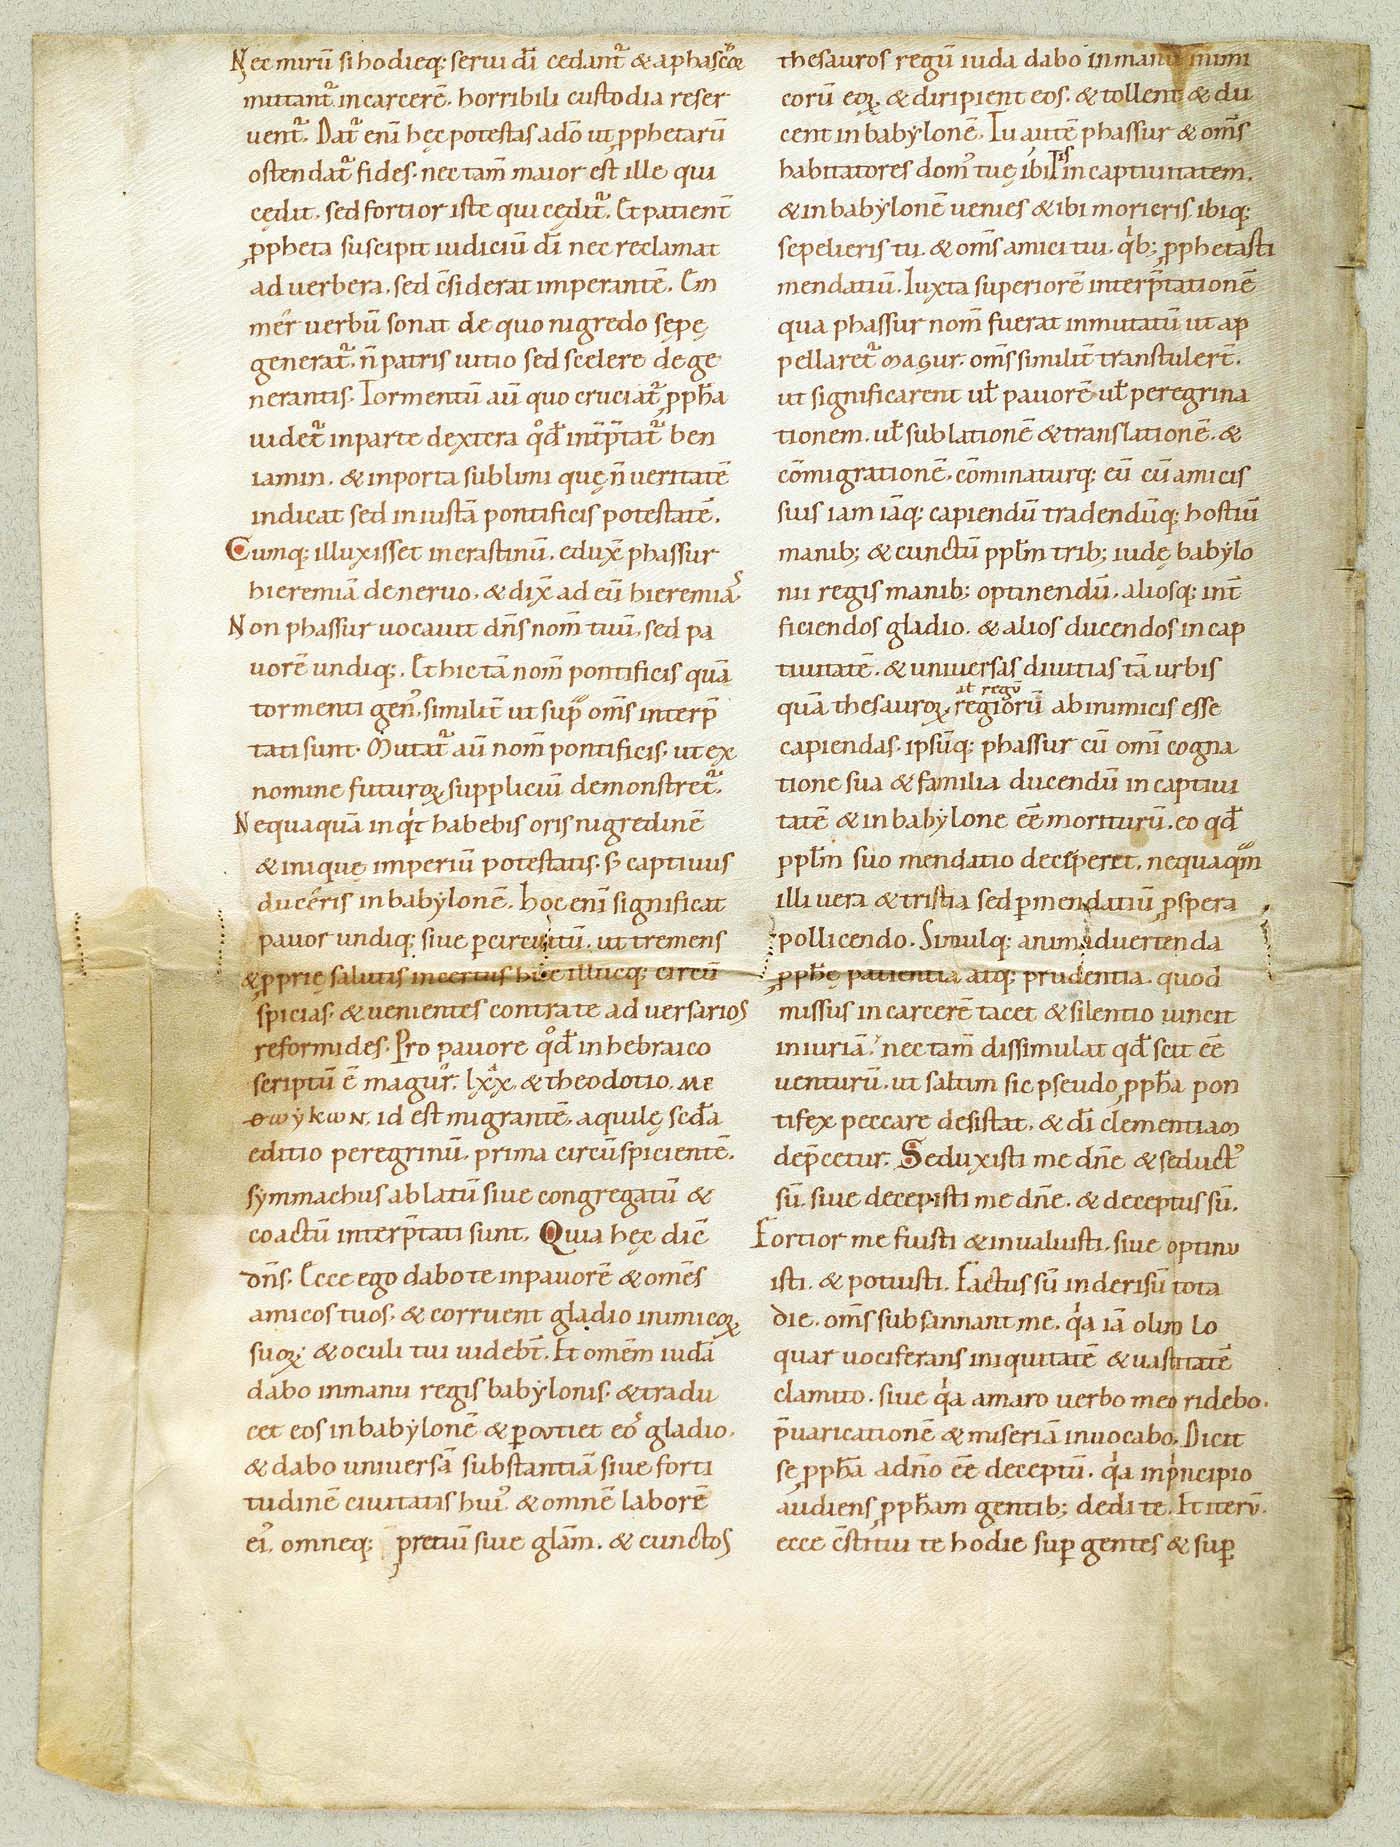 Nec mirū si hodieq; serui dī cedant᷑ & aphascōe
mittant᷑ in carcerē. horribili custodia reser
uent᷑. Dat᷑ enī hęc potestas adō ut ꝓphetarū
ostendat᷑ fides. nec tam̄ maior est ille qui
cędit. sed fortior iste qui cędit᷑. Et patient̄
ꝓpheta suscipit iudiciū dī nec reclamat
ad uerbera. sed c̄siderat imperantē. Em
mer uerbū sonat de quo nigredo sępę
generat᷑. n̄ patris uitio sed scelere dege
nerantis. Tormentū aū quo cruciat᷑ ꝓph̄a
uidet᷑ in parte dextera qd̄ int̄p̄tat᷑ ben
iamin. & inporta sublimi quę n̄ ueritatē
indicat sed iniustā pontificis potestatē.
Cumq; illuxisset in crastinū. eduxˉ phassur
hieremiā de neruo. & dixˉ ad eū hieremias.
Non phassur uocauit dn̄s nom̄ tuū. sed pa
uorē undiq;. Et hic tā nom̄ pontificis quā
tormenti gen᾽. similit̄ ut sup̄ om̄s interp̄
tati sunt. Mutat᷑ aū nom̄ pontificis. ut ex
nomine futuroꝝ suppliciū demonstret᷑.
Nequaquā inqͥt habebis oris nigredinē
& inique imperiū potestatis. s; captiuus
duceris in babylonē. hoc enī significat
pauor undiq; siue ꝑcircuitū. ut tremens
& ꝓprię salutis incertus huc illucq; circū
spicias. & uenientes contra te aduersarios
reformides. Pro pauore qd̄ in hebraico
scriptū ē magur. lxx. & theodotio. ΜΕ
ΘωΥΚωΝ. id est migrantē. aquilę scd̄a
editio peregrinū. prima circūspicientē.
symmachus ablatū siue congregatū &
coactū interp̄tati sunt. Quia hęc dic̄
dn̄s. Ecce ego dabo te in pauorē & om̄es
amicos tuos. & corruent gladio inimicoꝝ
suoꝝ. & oculi tui uideb̄t. Et omēm iudā
dabo inmanu regis babylonis. & tradu
cet eos in babylonē & ꝑcutiet eos gladio.
& dabo uniuersā substantiā siue forti
tudinē ciuitatis hui᾽. & omnē laborē
ei᾽. omneq; pretiū siue glām. & cunctos
thesauros regū iuda dabo in manu inimi
corū eoꝝ. & diripient eos. & tollent & du
cent in babylonē. Tu autē phassur & om̄s
habitatores dom᾽ tuę ibitis in captiuitatem.
& in babylonē uenies & ibi morieris. ibiq;
sepelieris tu. & om̄s amici tui. qͥb; ꝓphetasti
mendatiū. Iuxta superiorē interp̄tationē
qua phassur nom̄ fuerat inmutatū ut ap
pellaret᷑ magur. om̄s similit̄ transtulert̄.
ut significarent ul̄ pauorē ul̄ peregrina
tionem. ul̄ sublationē & translationē. &
cōmigrationē. cōminaturq; eū cū amicis
suis iam iāq; capiendū tradendūq; hostiū
manib; & cunctū ppl̄m trib; iudę babylo
nii regis manib; optinendū. aliosq; int̄
ficiendos gladio. & alios ducendos in cap
tiuitatē. & uniuersas diuitias tā urbis
ut regū
quā thesauroꝝ. regiorū ab inimicis esse
capiendas. ipsūq; phassur cū omī cogna
tione sua & familia ducendū in captiui
tatē & in babylone eē moriturū. eo qd̄
ppl̄m suo mendatio deciperet. nequaquā
illi uera & tristia sed ꝑ mendatiū ꝓspera
pollicendo. Simulq; animaduertenda
ꝓph̄ę patientia atq; prudentia. quod
missus in carcerē tacet & silentio uincit
iniuriā. nec tam̄ dissimulat qd̄ scit eē
uenturū. ut saltim sic pseudo ꝓph̄a pon
tifex peccare desistat. & dī clementiam
dep̄cetur. Seduxisti me dn̄e & seduct᾽
sū. siue decepisti me dn̄e. & deceptus sū.
Fortior me fuisti & inualuisti. siue optinu
isti. & potuisti. Factus sū in derisū tota
die. om̄s subsannant me. qͣa iā olim lo
quar uociferans iniquitatē & uastitatē
clamito. siue qͣa amaro uerbo meo ridebo.
p̄uaricationē & miseriā inuocabo. Dicit
se ꝓph̄a adn̄o eē deceptū. qͣa in pͥncipio
audiens ꝓph̄am gentib; dedi te. Et iterū.
ecce c̄stitui te hodie suꝑ gentes & suꝑ